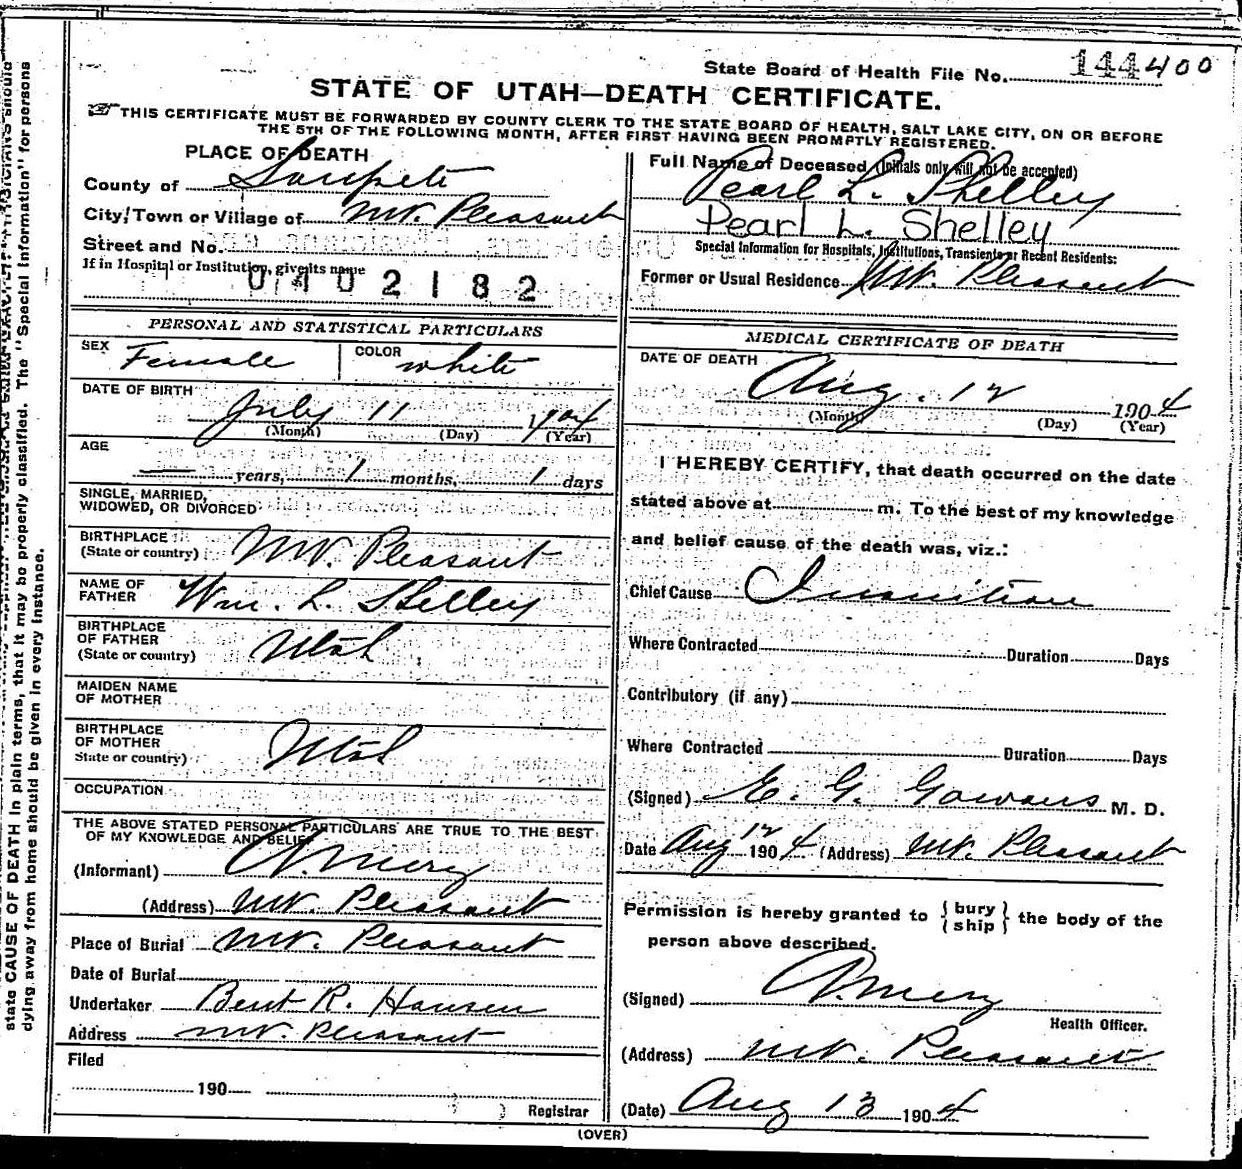 State Board of Health File No. 144400
STATE OF UTAH—DEATH CERTIFICATE.
THIS CERTIFICATE MUST BE FORWARDED BY COUNTY CLERK TO THE STATE BOARD OF HEALTH, SALT LAKE CITY, ON OR BEFORE
THE 5TH OF THE FOLLOWING MONTH, AFTER FIRST HAVING BEEN PROMPTLY REGISTERED.
PLACE OF DEATH
County of Sanpete
City, Town or Village of Mt. Pleasant
Street and No.
If in Hospital or Institution, give its name
0402182
Full Name of Deceased (Initials only will not be accepted)
Pearl L. Shelley
Pearl L. Shelley
Special Information for Hospitals, Institutions, Transients or Recent Residents:
Former or Usual Residence Mt. Pleasant
PERSONAL AND STATISTICAL PARTICULARS
SEX Female COLOR White
DATE OF BIRTH
July 11 1904
(Month) (Day) (Year)
AGE
— years, 1 months, 1 days
SINGLE, MARRIED,
WIDOWED, OR DIVORCED
BIRTHPLACE
(State or country) Mt. Pleasant
NAME OF
FATHER Wm. L. Shelley
BIRTHPLACE
OF FATHER
(State or country) Utah
MAIDEN NAME
OF MOTHER
BIRTHPLACE
OF MOTHER
State or country) Utah
OCCUPATION
THE ABOVE STATED PERSONAL PARTICULARS ARE TRUE TO THE BEST
OF MY KNOWLEDGE AND BELIEF
(Informant)
(Address) Mt. Pleasant
Place of Burial Mt. Pleasant
Date of Burial
Undertaker Bent R. Hansen
Address Mt. Pleasant
Filed
190
Registrar
MEDICAL CERTIFICATE OF DEATH
DATE OF DEATH
Aug. 12 1904
(Month) (Day) (Year)
I HEREBY CERTIFY, that death occurred on the date
stated above at m. To the best of my knowledge
and belief cause of the death was, viz.:
Chief Cause Inanition
Where Contracted Duration Days
Contributory (if any)
Where Contracted Duration Days
(Signed) E. G. Gowans M. D.
Date Aug 12 1904 (Address) Mt. Pleasant
Permission is hereby granted to { bury ship } the body of the
person above described.
(Signed)
Health Officer.
(Address) Mt. Pleasant
(Date) Aug 13 1904
(OVER)
state CAUSE OF DEATH in plain terms, that it may be properly classified. The "Special Information" for persons
dying away from home should be given in every instance.